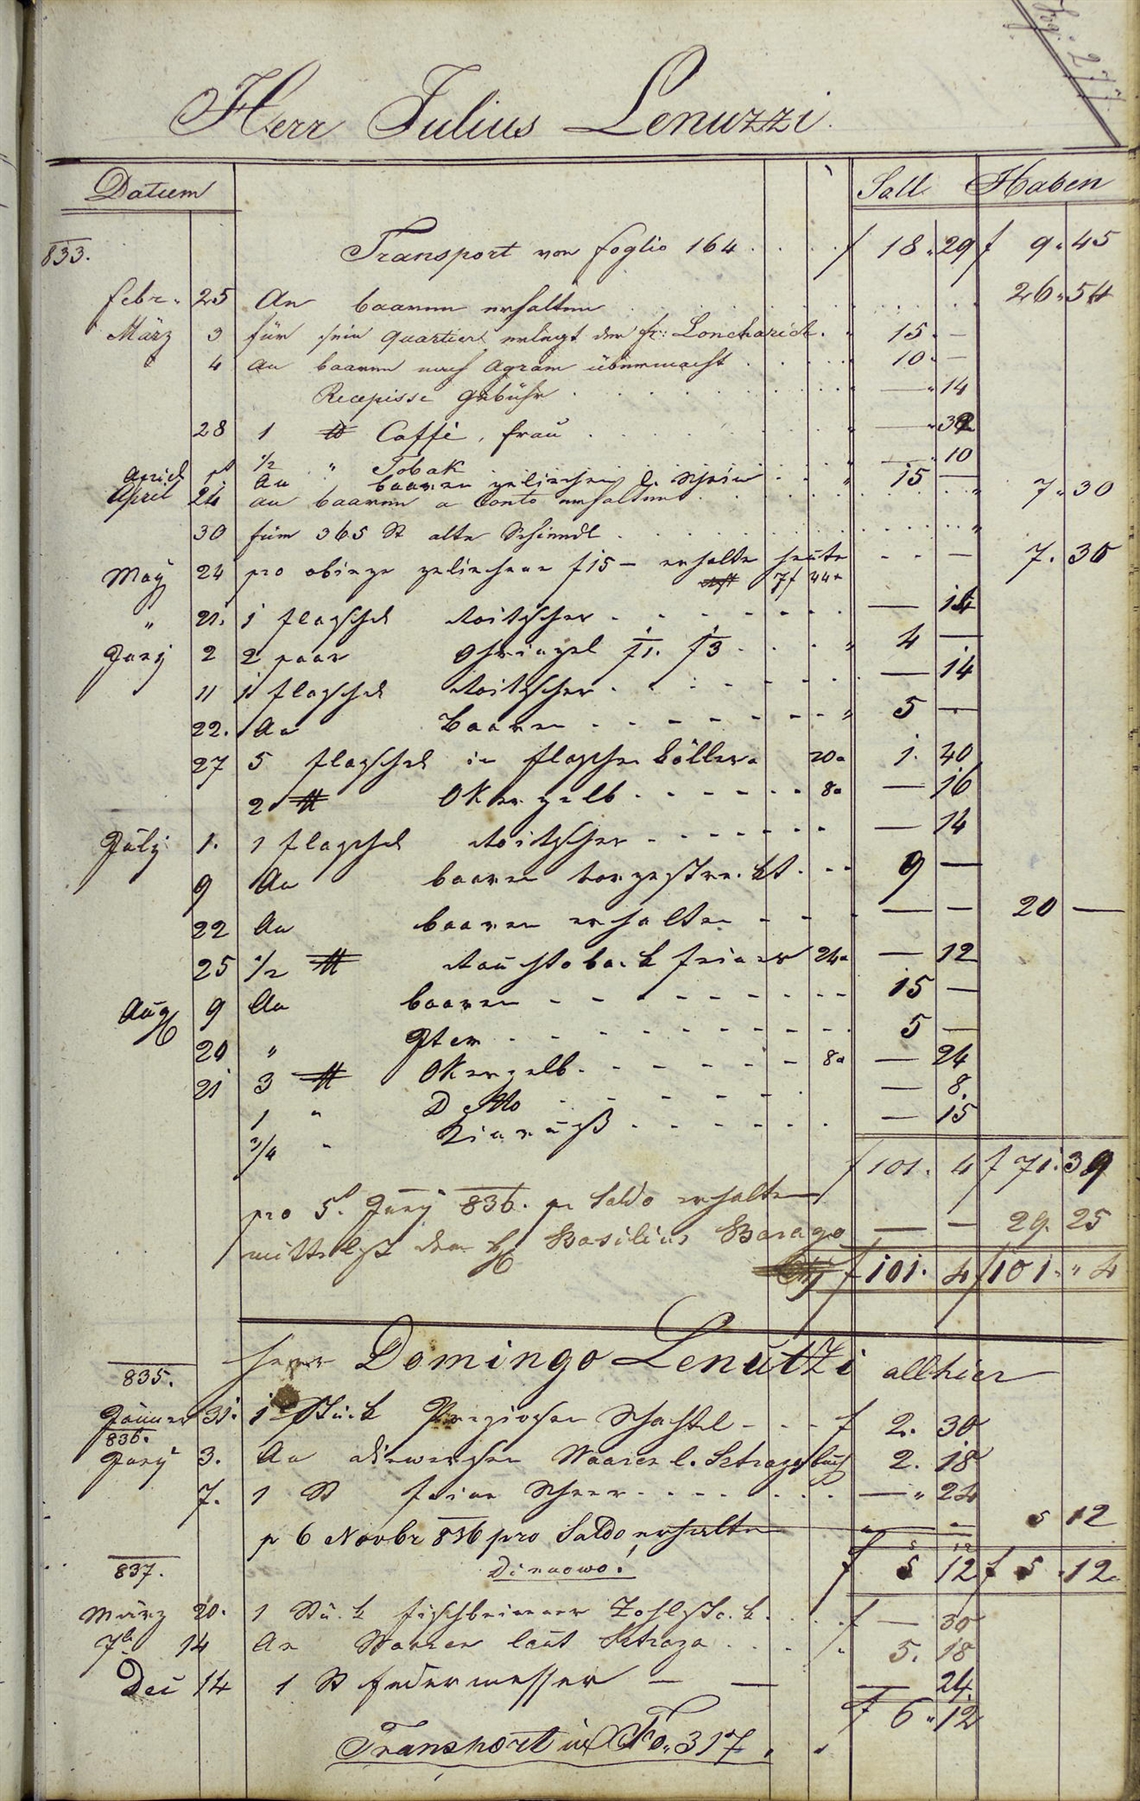 Fog: 277.
Herr Julius Lenuzzi.
Datum Soll Haben
833. Transport von foglio 164 f 18. 29 f 9. 45
Febr. 25 An baarem erhalten 26. 54
März 3 für sein quartier erlegt dem H: Loncharich 15. —
4 An baarem nach Agram übermacht 10. —
Recepisse gebühr — 14
28 1 ℔ Caffé, frau — 32
1/2 " Tobak — 10
April 1 An baaren geliehen l. Schein 15 —
April 24 an baarem a Conto erhalten 7. 30
30 für 365 St alte Schindl
May 24 pro obige geliehene f 15 — erhalte heute — 7. 30
" 21. 1 flaschel — 14
Juny 2 2 paar Ohringel f1. f3 " 4 —
11 1 flaschel — 14
22. An Baaren " 5 —
27 5 flaschel in flaschen 20 1. 40
2 ℔ Okergelb 8 — 16
July 1. 1 flaschel — 14
9 An baaren vorgestreckt 9 —
22 An baaren erhalten — — 20 —
25 1/2 ℔ Rauchtoback feiner 24 — 12
Aug 9 An baaren 15 —
20 " Dter 5 —
21 3 ℔ Okergelb 8 — 24
1 " Detto — 8.
3/4 " Kienruß — 15
f 101. 4 f 71. 39
pro 5 Juny 836. pr Saldo erhalten
mittelst dem H Basilius Barago — — 29. 25
f 101. 4 f 101. " 4
835. Herr Domingo Lenutzi allhier
Jänner 31. 1 Stück Schachtel f 2. 30
836.
Juny 3. An diversen Waaren l. Strazzabuch 2. 18
7. 1 St feine Scheer — " 24
p 6 Novbr 836 pro Saldo erhalten 5 12
f 5 12 f 5. 12
837.
März 20. 1 Stück fischbeinener f — 30
14 An Waaren laut Straza 5. 18
Dec 14 1 St federmesser — 24
f 6. 12
Transport in Fo. 317